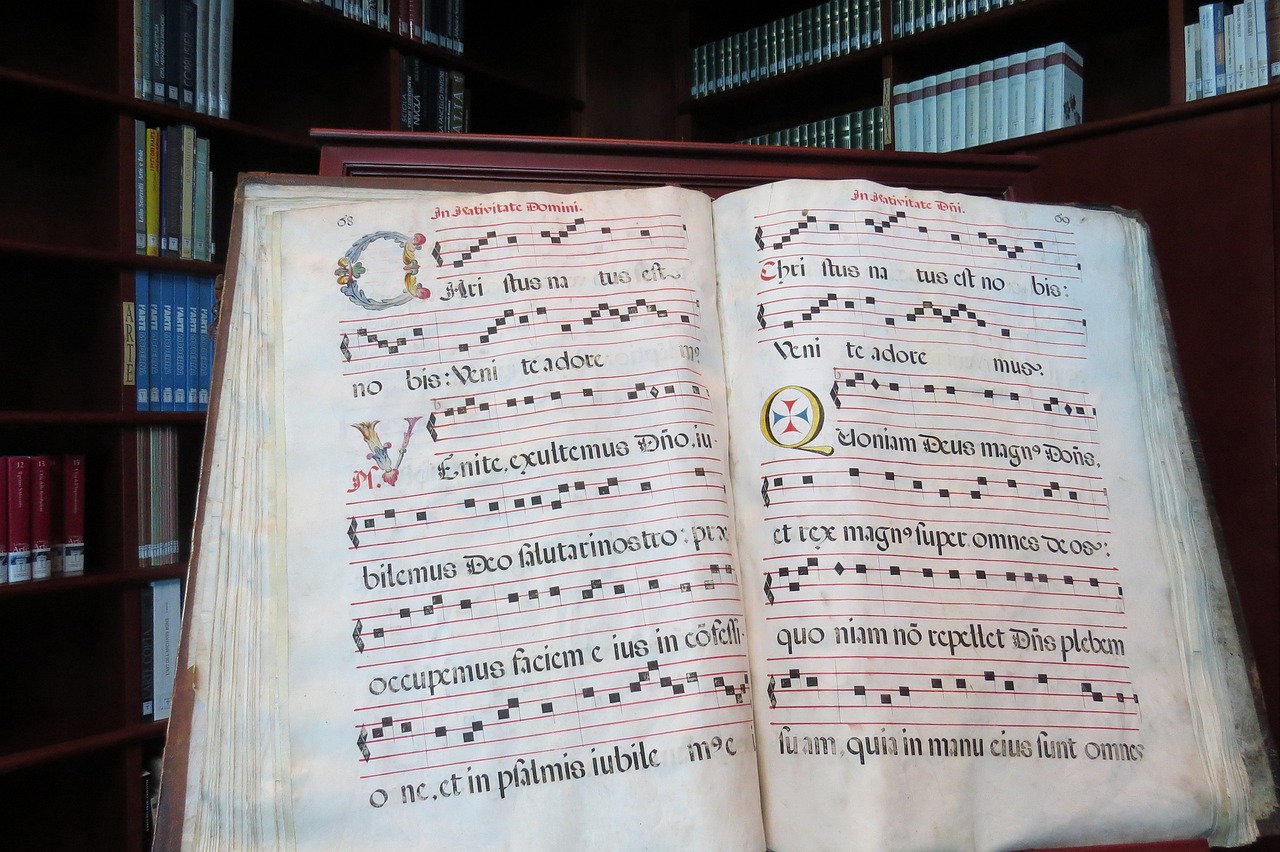 68
In Nativitate Domini.
CHri stus na tus est
no bis: Veni te adore m9
Ps. VEnite, exultemus Dño, iu-
bilemus Deo salutarinostro: præ
occupemus faciem e ius in cõfessi-
o ne, et in psalmis iubile m9 e
69
In Nativitate Dñi.
Chri stus na tus est no bis:
Veni te adore mus.
QUoniam Deus magn9 Dońs,
et rex magn9 super omnes deos:
quo niam nõ repellet Dñs plebem
su am, quia in manu eius sunt omnes
ARTE
L'ARTE
L'ARTE
L'ARTE
L'ARTE
L'ARTE